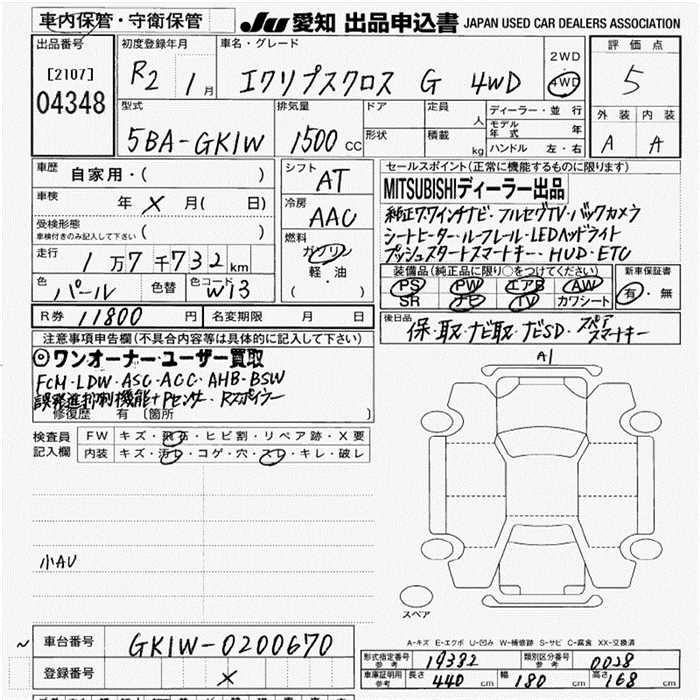 車内保管・守衛保管
JU 愛知 出品申込書 JAPAN USED CAR DEALERS ASSOCIATION
出品番号
[2107]
04348
初度登録年月
R2 1月
車名・グレード
エクリプスクロス G 4WD
2WD
4WD
評価点
5
外装 内装
A A
型式
5BA-GK1W
排気量
1500 CC
ドア
形状
定員 人
積載 kg
ディーラー・並行
モデル年式 年
ハンドル 左・右
車歴
自家用・( )
車検
年 X 月( 日)
受検形態
車検付きのみ記入して下さい ( )
走行
1万7千732km
色
パール
色替
色コード
W13
シフト
AT
冷房
AAC
燃料
ガソリン
軽・油
( )
R券 11800 円
名変期限 月 日
セールスポイント(正常に機能するものに限ります)
MITSUBISHIディーラー出品
純正7.7インチナビ・フルセグTV・バックカメラ
シートヒーター・ルーフレール・LEDヘッドライト
プッシュスタートスマートキー・HUD・ETC
装備品(純正品に限り○をつけてください)
PS PW エアB AW
SR ナビ TV カワシート
新車保証書
有・無
後日品
保・取・ナビ取・ナビSD・スペアスマートキー
注意事項申告欄(不具合内容等は具体的に記入して下さい)
◎ワンオーナー・ユーザー買取
FCM・LDW・ASC・ACC・AHB・BSW
誤発進抑制機能+Pセンサ・Rスポイラー
修復歴 有〔箇所 〕
検査員記入欄
FW キズ・飛石・ヒビ割・リペア跡・X要
内装 キズ・汚レ・コゲ・穴・スレ・キレ・破レ
A1
小AU
スペア
A-キズ E-エクボ U-凹み W-補修跡 S-サビ C-腐食 XX-交換済
車台番号
GK1W-0200670
登録番号
X
形式指定番号 参考 19332
類別区分番号 参考 0028
車庫証明用 参考 長さ 440 cm 幅 180 cm 高さ 168 cm